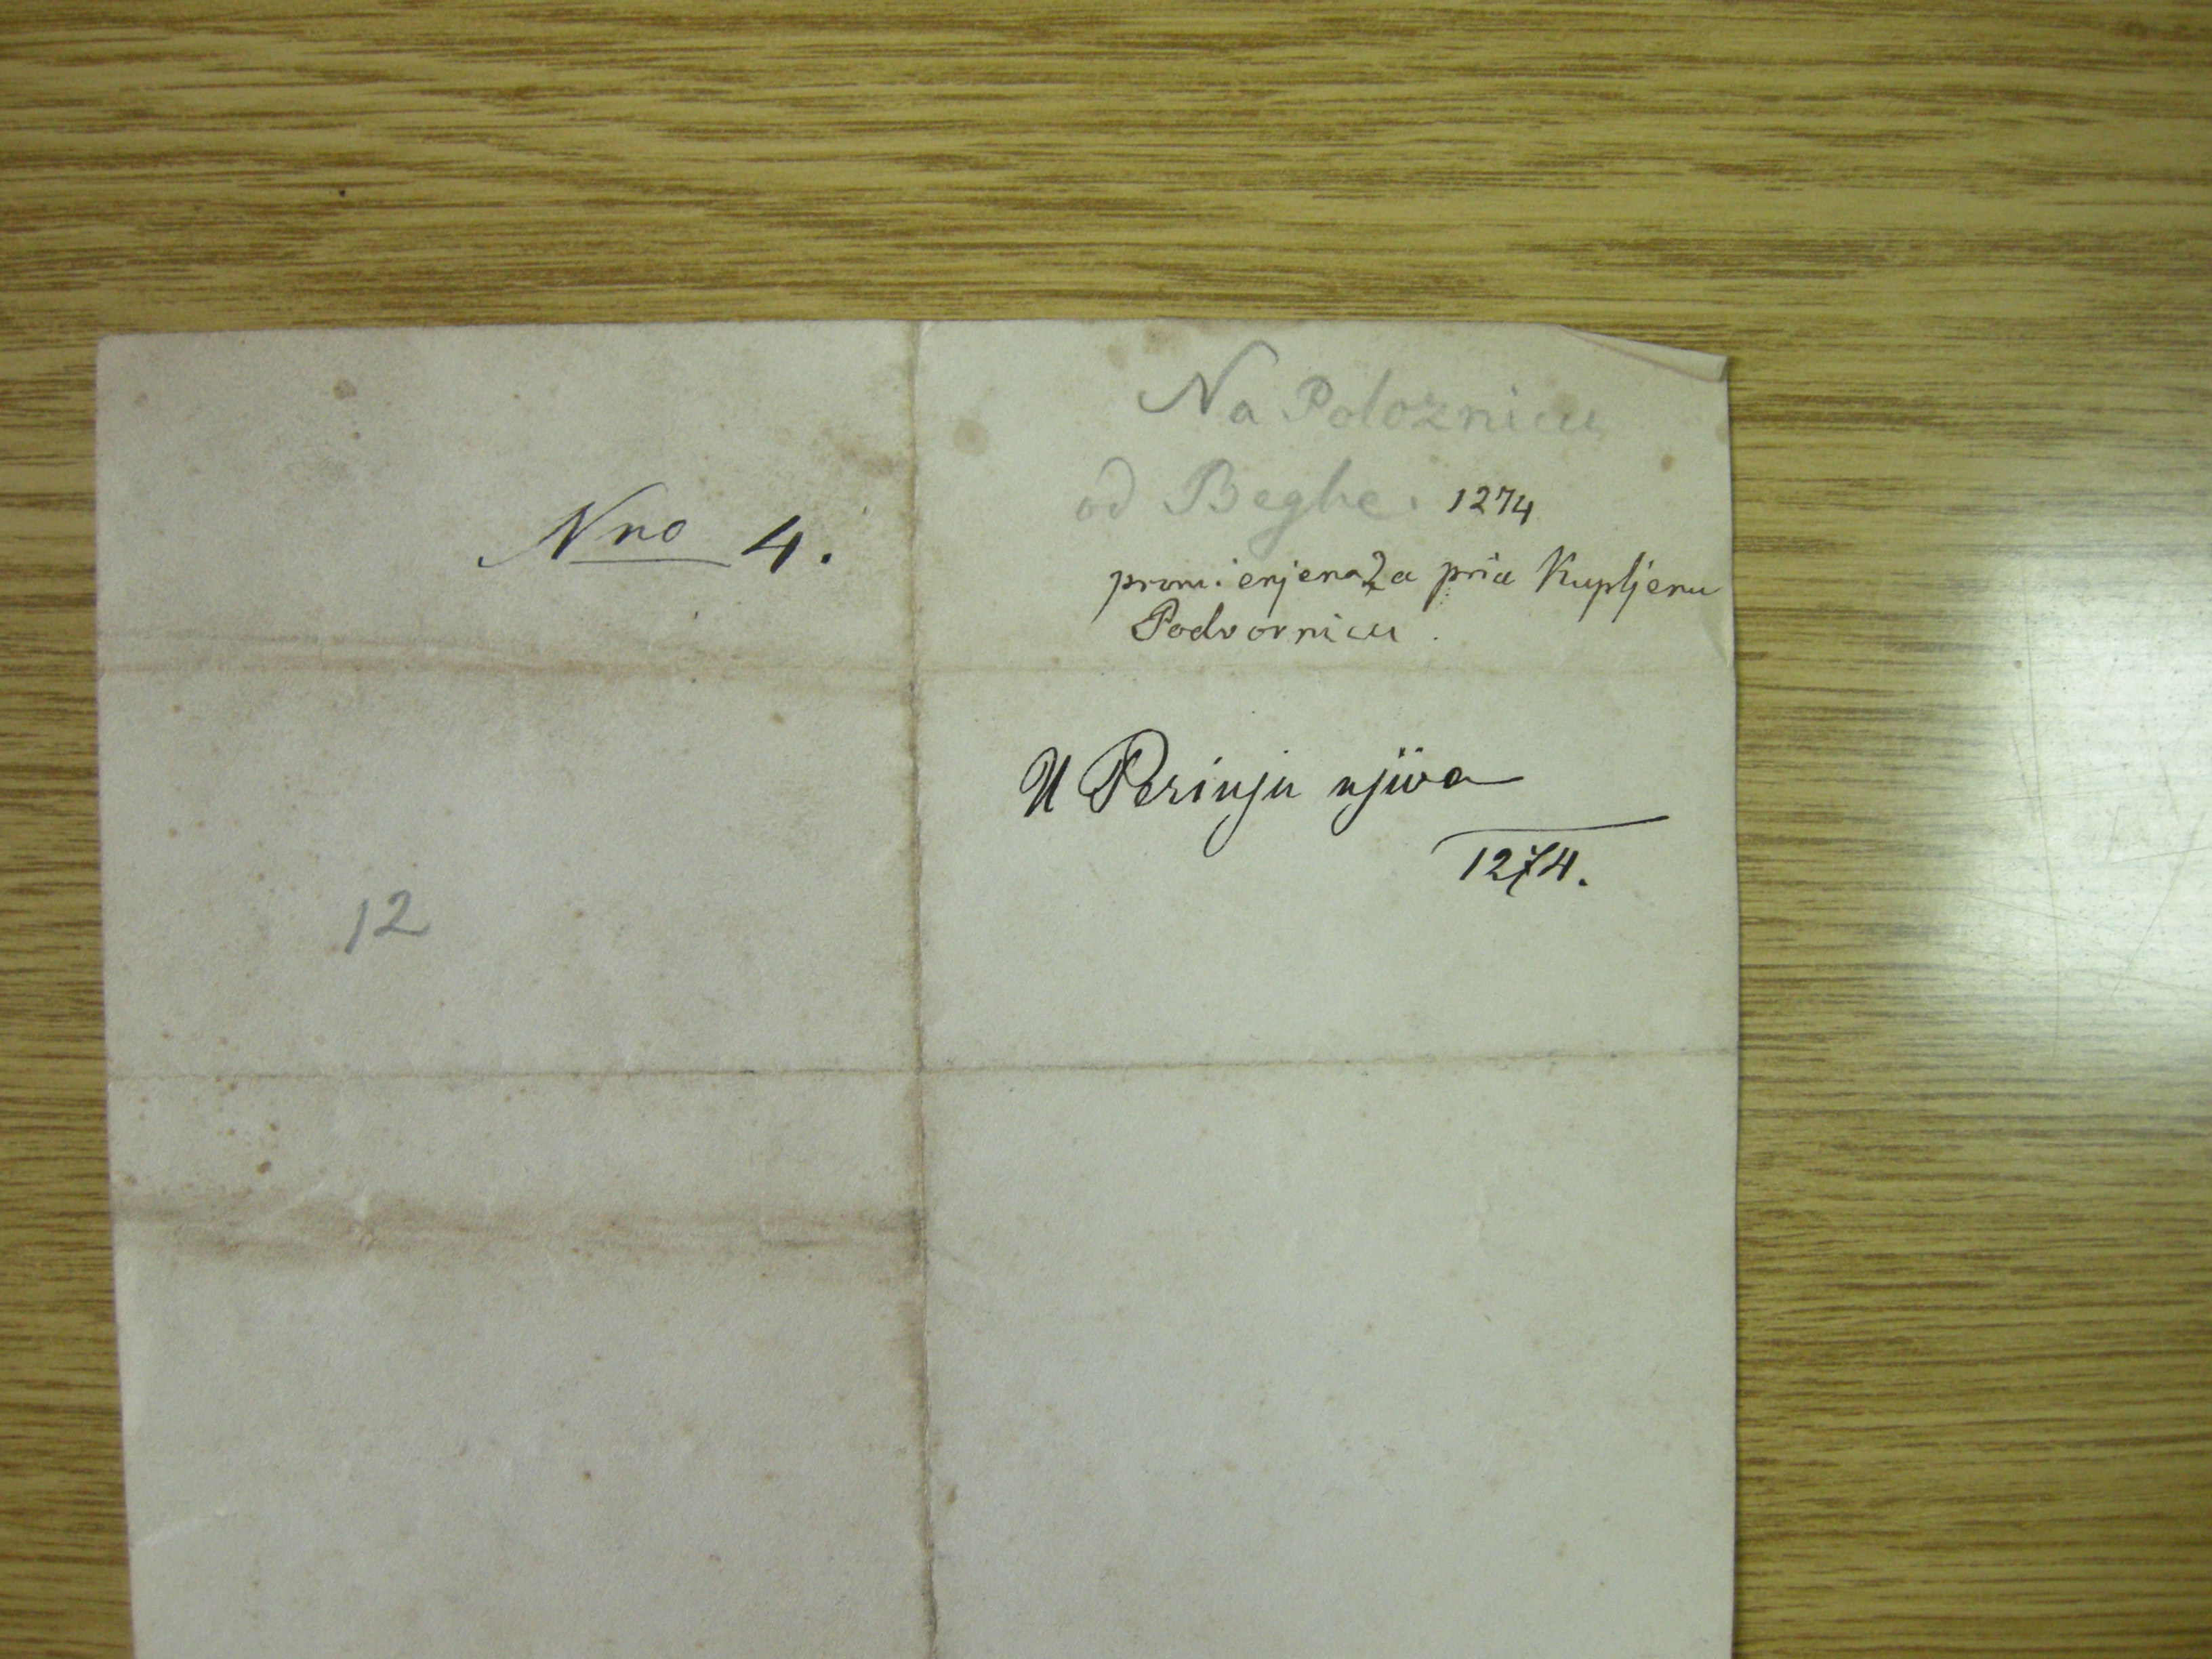 Nro 4.
12
Na Poloznicu
od Beghe. 1274
promienjena za pria Kupljenu
Podvornicu.
U Perinju njiva
1274.